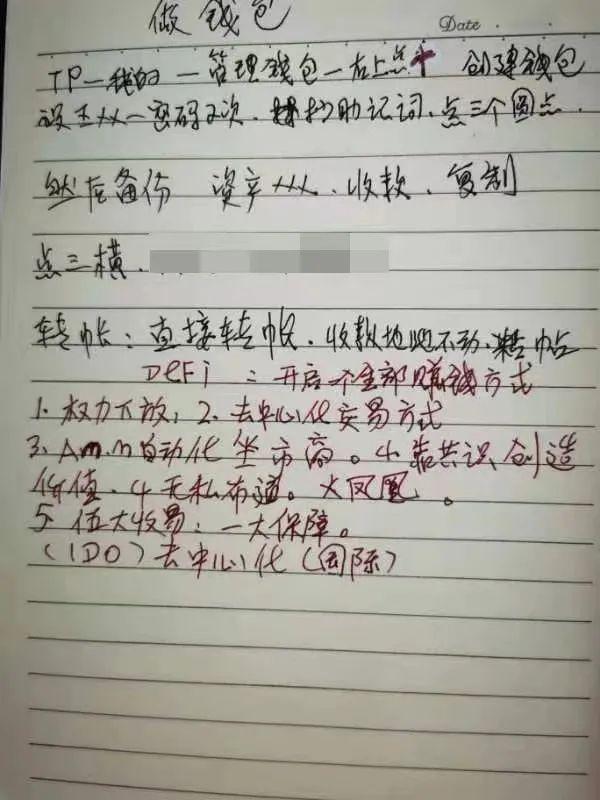 做钱包
Date
TP—我的—管理钱包—右上点+ 创建钱包
设 — 密码2次. 抄助记词、点三个圆点.
然后备份 资产 . 收款、复制
点三横.
转帐：直接转帐. 收款地址不动. 转帖
DeFi：开启 全部赚钱方式
1. 权力下放；2. 去中心化交易方式
3. Am.m自动化坐市商。4. 靠共识创造
价值. 4无私布道。火凤凰。
5 伍大收易：一大保障。
(IDO) 去中心化（国际）